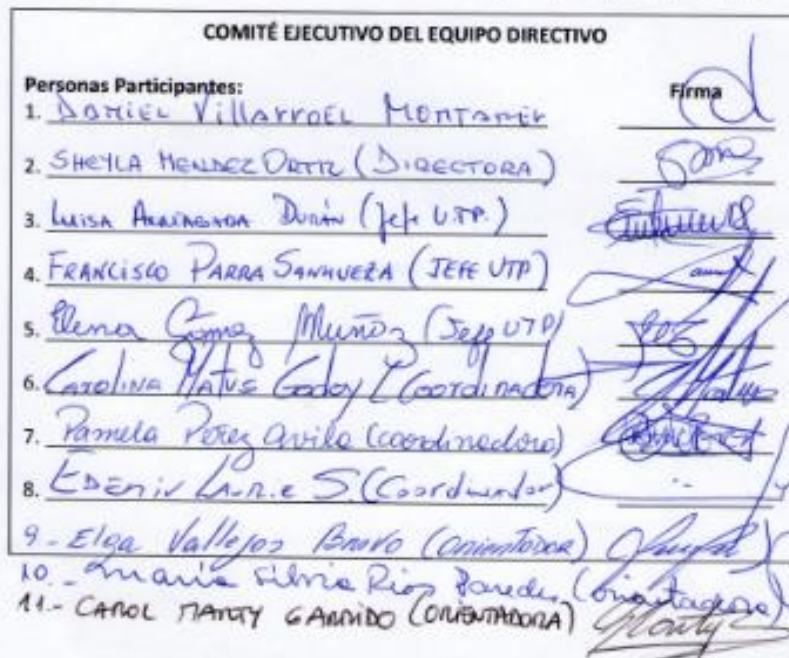 COMITÉ EJECUTIVO DEL EQUIPO DIRECTIVO
Personas Participantes: Firma
1. DANIEL VILLARROEL MONTANER
2. SHEYLA MENDEZ ORTIZ (DIRECTORA)
3. LUISA ARRIAGADA DURÁN (Jefe UTP.)
4. FRANCISCO PARRA SANHUEZA (JEFE UTP)
5. Elena Gómez Muñoz (Jefe UTP)
6. CAROLINA MATUS Godoy (COORDINADORA)
7. Pamela Perez Avila (coordinadora)
8. EDEMIV S. (Coordinador)
9.- Elga Vallejos Bravo (ORIENTADORA)
10.- María Silvia Rios Paredes (orientadora)
11.- CAROL MANTY GARRIDO (ORIENTADORA)